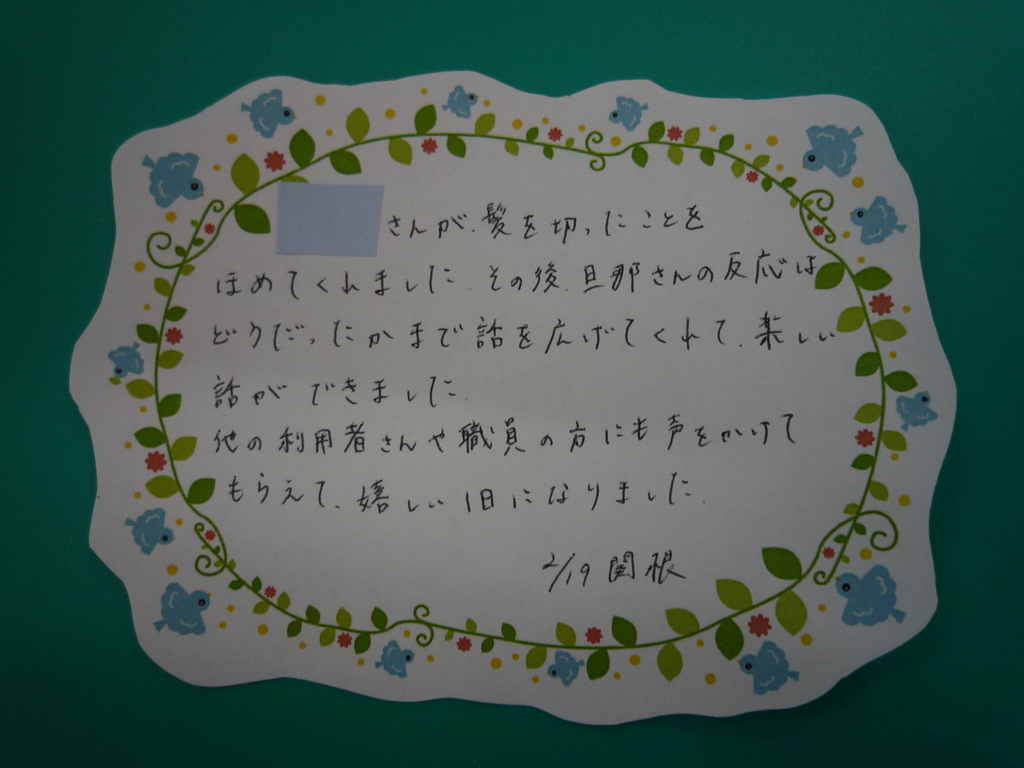 さんが、髪を切ったことを
ほめてくれました。その後、旦那さんの反応は
どうだったかまで話を広げてくれて、楽しい
話ができました。
他の利用者さんや職員の方にも声をかけて
もらえて、嬉しい1日になりました。
2/19 関根